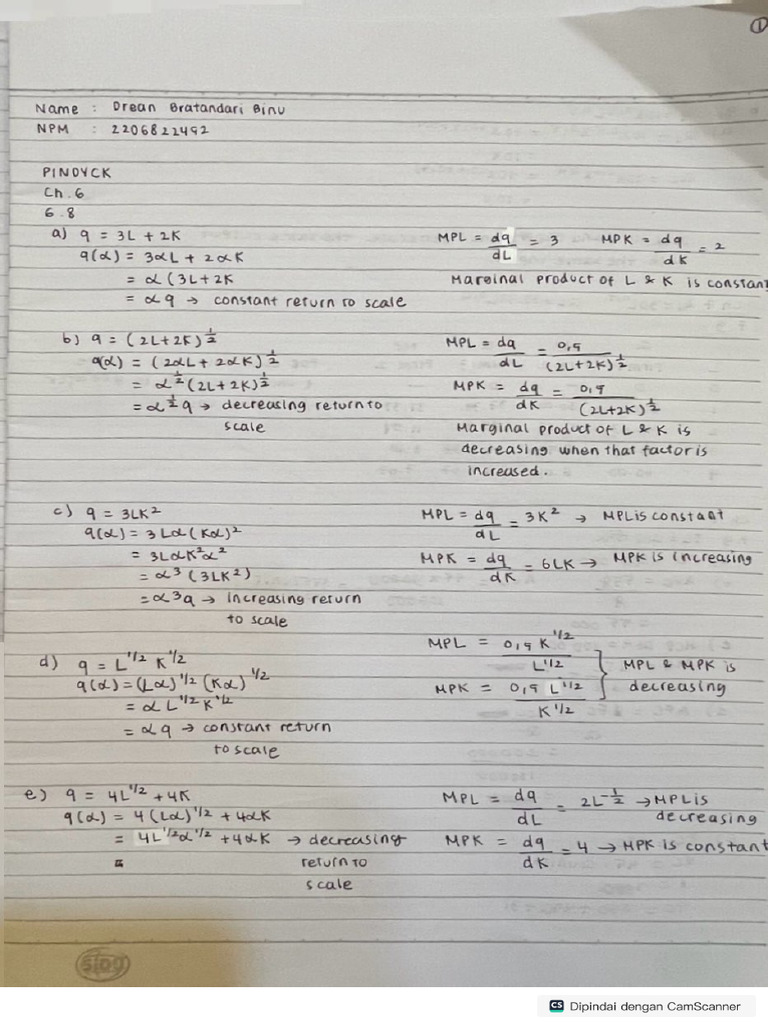 1
Name : Drean Bratandari Binu
NPM : 2206822492
PINDYCK
Ch. 6
6.8
a) q = 3L + 2K
q(α) = 3αL + 2αK
= α (3L+2K
= αq → constant return to scale
MPL = dq/dL = 3 MPK = dq/dK = 2
Marginal product of L & K is constant
b) q = (2L+2K)^½
q(α) = (2αL + 2αK)^½
= α^½ (2L+2K)^½
= α^½ q → decreasing return to
scale
MPL = dq/dL = 0,5/(2L+2K)^½
MPK = dq/dK = 0,5/(2L+2K)^½
Marginal product of L & K is
decreasing when that factor is
increased.
c) q = 3LK²
q(α) = 3Lα(Kα)²
= 3LαK²α²
= α³ (3LK²)
= α³q → increasing return
to scale
MPL = dq/dL = 3K² → MPL is constant
MPK = dq/dK = 6LK → MPK is increasing
d) q = L^1/2 K^1/2
q(α) = (Lα)^1/2 (Kα)^1/2
= α L^1/2 K^1/2
= αq → constant return
to scale
MPL = 0,5 K^1/2 / L^1/2
MPK = 0,5 L^1/2 / K^1/2
} MPL & MPK is
decreasing
e) q = 4L^1/2 + 4K
q(α) = 4(Lα)^1/2 + 4αK
= 4L^1/2 α^1/2 + 4αK → decreasing
return to
scale
MPL = dq/dL = 2L^-½ → MPL is
decreasing
MPK = dq/dK = 4 → MPK is constant
SIDU
CS Dipindai dengan CamScanner